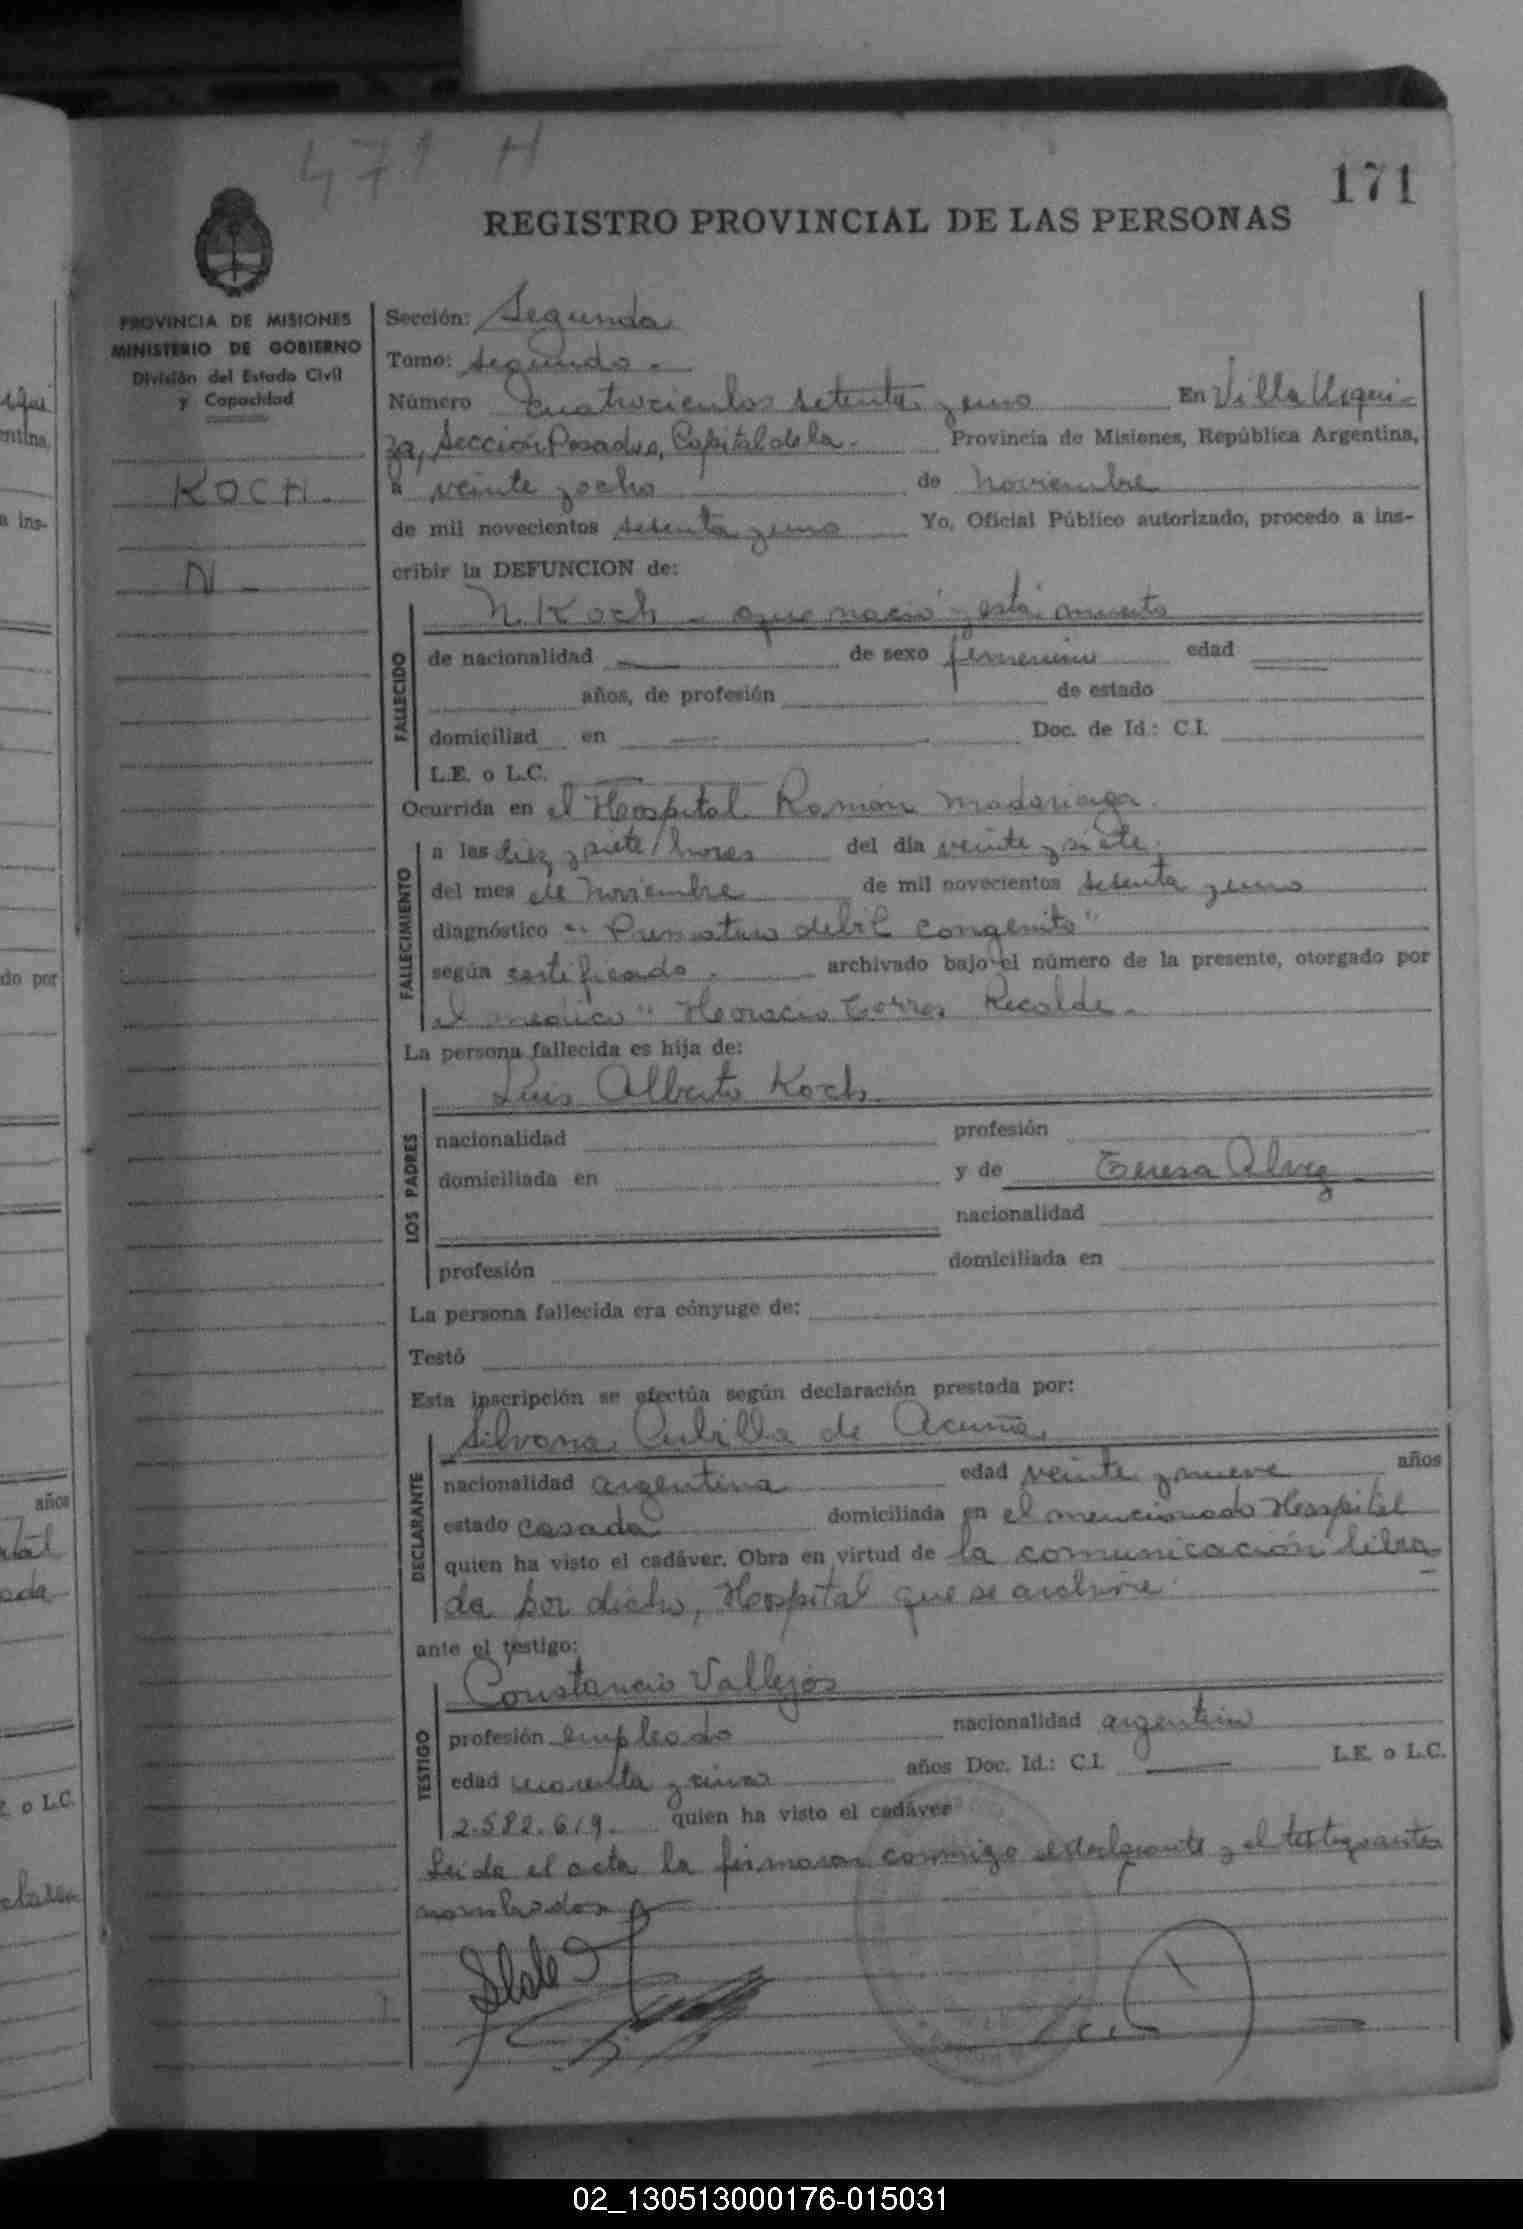 471 H
171
REGISTRO PROVINCIAL DE LAS PERSONAS
PROVINCIA DE MISIONES
MINISTERIO DE GOBIERNO
División del Estado Civil
y Capacidad
KOCH.
N -
Sección: Segunda
Tomo: Segundo -
Número Cuatrocientos setenta y uno En Villa Urqui-
za, Sección Posadas, Capital de la - Provincia de Misiones, República Argentina,
a veinte y ocho de noviembre
de mil novecientos setenta y uno Yo, Oficial Público autorizado, procedo a ins-
cribir la DEFUNCION de:
N. Koch - que nació y está muerto
FALLECIDO
de nacionalidad — de sexo femenino edad —
años, de profesión de estado
domiciliad en — Doc. de Id.: C.I.
L.E. o L.C. —
Ocurrida en el Hospital Ramón Madariaga.
FALLECIMIENTO
a las diez y siete horas del día veinte y siete
del mes de noviembre de mil novecientos setenta y uno
diagnóstico "Prematuro debil congenito"
según certificado. archivado bajo el número de la presente, otorgado por
el medico "Horacio Torres Recalde.
La persona fallecida es hija de:
Luis Alberto Koch.
LOS PADRES
nacionalidad profesión
domiciliada en y de Teresa Alvez
nacionalidad
profesión domiciliada en
La persona fallecida era cónyuge de:
Testó
Esta inscripción se efectúa según declaración prestada por:
Silvana Cubilla de Acuña,
DECLARANTE
nacionalidad argentina edad veinte y nueve años
estado casada domiciliada en el mencionado Hospital
quien ha visto el cadáver. Obra en virtud de la comunicación libra
da por dicho, Hospital que se archiva.
ante el testigo:
Constancio Vallejos
TESTIGO
profesión empleado nacionalidad argentino
edad cuarenta y cinco años Doc. Id.: C.I. — L.E. o L.C.
2.582.619. quien ha visto el cadáver
Leida el acta la firmaron conmigo el declarante y el testigo antes
nombrados
años
E. o L.C.
do por
a ins-
entina,
02_130513000176-015031